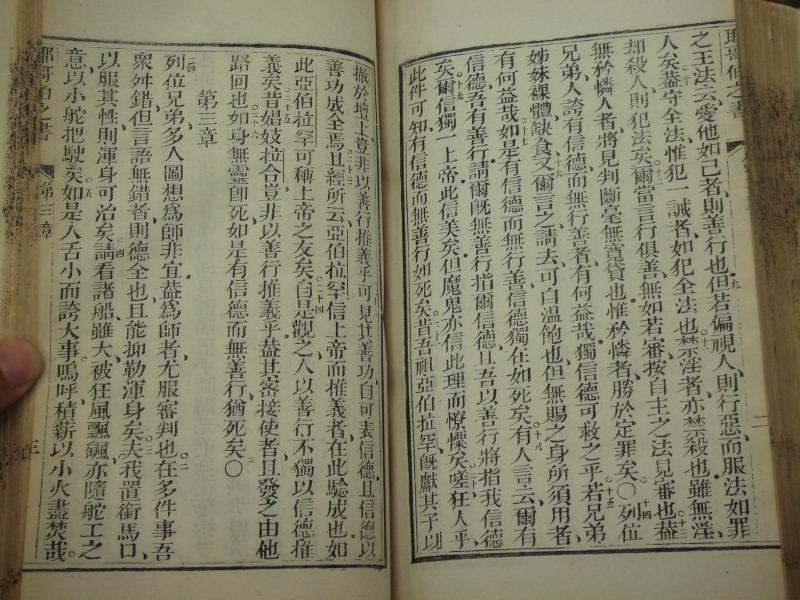 耶哥伯之書
二
之王法云、愛他如己者、則善行也。九但若偏視人、則行惡而服法如罪
人矣。十蓋守全法、惟犯一誡者、如犯全法也。十一禁淫者、亦禁殺也。雖無淫、
却殺人、則犯法矣。十二爾當言行俱善、無如若審按自主之法見審也。十三蓋
無矜憐人者、將見判斷、毫無寬貸也。惟矜憐者、勝於定罪矣。○十四列位
兄弟、人誇有信德、而無行善者、有何益哉。獨信德可救之乎。十五若兄弟
姊妹裸體缺食、十六又爾言之、請去、可自溫飽也、但無賜之身所須用者、
有何益哉。十七如是有信德而無行善、信德獨在如死矣。十八有人言云、爾有
信德、吾有善行、請爾旣無善行、指爾信德、且吾以善行將指我信德
矣。十九爾信獨一上帝、此信美矣、但魔鬼亦信此理而憭慄矣。二十嗟狂人乎、
此件可知、有信德而無善行如死矣。昔吾祖亞伯拉罕、旣獻其子以
撒於壇上、豈非以善行推義乎。可見其善功、自可表信德、且信德以
善功成全焉。二十三且經所云、亞伯拉罕信上帝、而推義者、在此驗成也、如
此亞伯拉罕可稱上帝之友矣。二十四自是觀之、人以善行、不獨以信德推
義矣。二十五昔娼妓拉合豈非以善行推義乎。蓋其審接使者、且發之由他
路回也。二十六如身無靈卽死、如是有信德而無善行、猶死矣。○
第三章
一列位兄弟、多人圖想爲師非宜、蓋爲師者、尤服審判也。二在多件事、吾
衆舛錯、但言語無錯者、則德全也、且能抑勒渾身矣。三夫我置銜馬口、
以服其性、則渾身可治矣。四請看諸船雖大、被狂風飄颻、亦隨舵工之
意、以小舵把駛矣。五如是人舌小而誇大事、嗚呼、積薪以小火盡焚哉。
耶哥伯之書
第三章
三